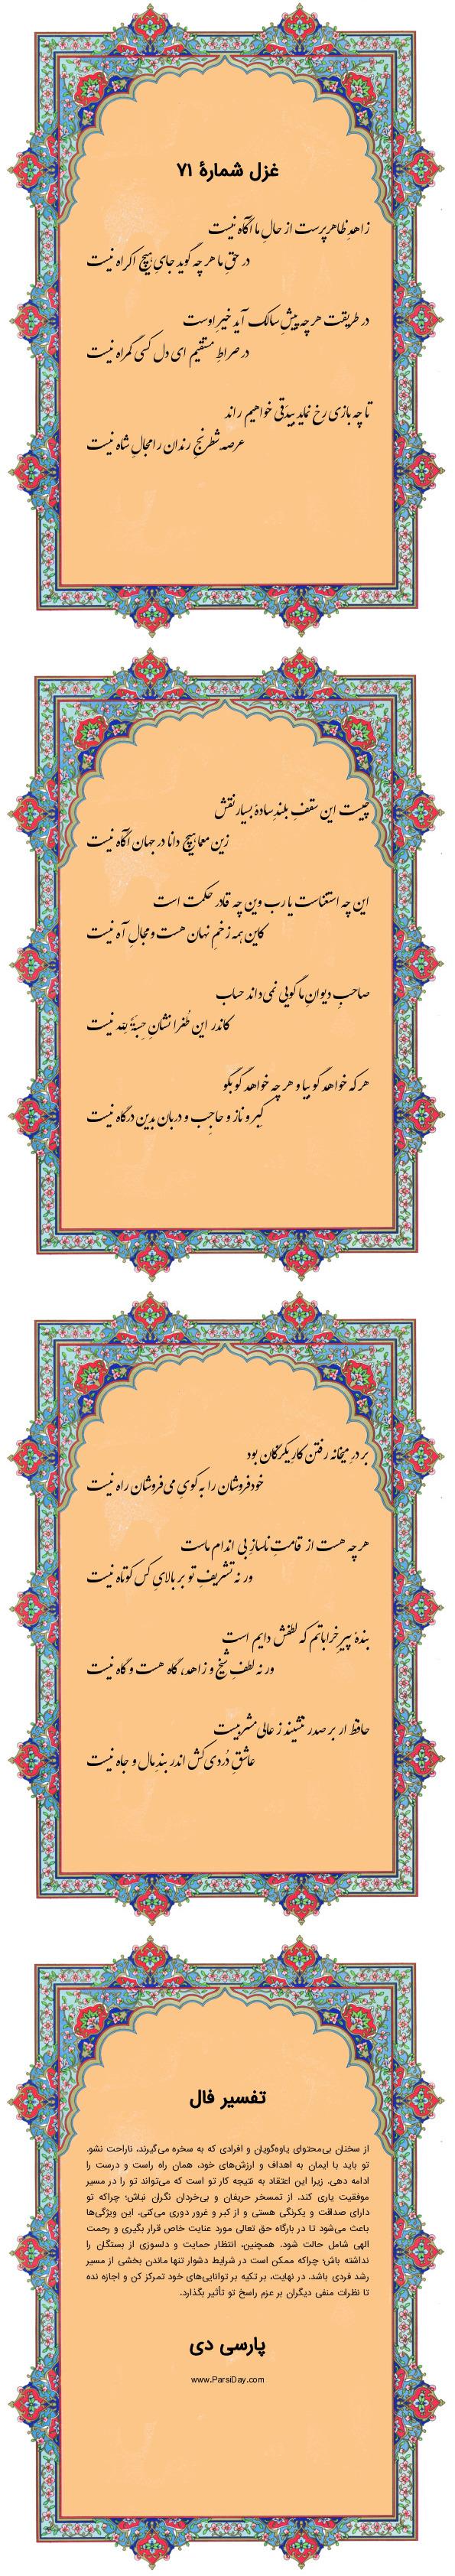 غزل شمارهٔ ۷۱
زاهدِ ظاهرپرست از حالِ ما آگاه نیست
در حقِ ما هر چه گوید جایِ هیچ اکراه نیست
در طریقت هر چه پیشِ سالک آید خیرِ اوست
در صراطِ مستقیم ای دل کسی گمراه نیست
تا چه بازی رخ نماید بیدقی خواهیم راند
عرصه شطرنجِ رندان را مجالِ شاه نیست
چیست این سقفِ بلندِ سادهٔ بسیارنقش
زین معما هیچ دانا در جهان آگاه نیست
این چه استغناست یا رب وین چه قادر حکمت است
کاین همه زخمِ نهان هست و مجالِ آه نیست
صاحبِ دیوانِ ما گویی نمی‌داند حساب
کاندر این طُغرا نشانِ حِسبَةً لِلّه نیست
هر که خواهد گو بیا و هر چه خواهد گو بگو
کبر و ناز و حاجِب و دربان بدین درگاه نیست
بر درِ میخانه رفتن کارِ یکرنگان بود
خودفروشان را به کویِ می‌فروشان راه نیست
هر چه هست از قامتِ ناسازِ بی اندام ماست
ور نه تشریفِ تو بر بالایِ کس کوتاه نیست
بندهٔ پیرِ خراباتم که لطفش دایم است
ور نه لطفِ شیخ و زاهد، گاه هست و گاه نیست
حافظ ار بر صدر ننشیند ز عالی مشربیست
عاشقِ دُردی‌کش اندر بندِ مال و جاه نیست
تفسیر فال
از سخنان بی‌محتوای یاوه‌گویان و افرادی که به سخره می‌گیرند، ناراحت نشو.
تو باید با ایمان به اهداف و ارزش‌های خود، همان راه راست و درست را
ادامه دهی. زیرا این اعتقاد به نتیجه کار تو است که می‌تواند تو را در مسیر
موفقیت یاری کند. از تمسخر حریفان و بی‌خردان نگران نباش؛ چراکه تو
دارای صداقت و یکرنگی هستی و از کبر و غرور دوری می‌کنی. این ویژگی‌ها
باعث می‌شود تا در بارگاه حق تعالی مورد عنایت خاص قرار بگیری و رحمت
الهی شامل حالت شود. همچنین، انتظار حمایت و دلسوزی از بستگان را
نداشته باش؛ چراکه ممکن است در شرایط دشوار تنها ماندن بخشی از مسیر
رشد فردی باشد. در نهایت، بر تکیه بر توانایی‌های خود تمرکز کن و اجازه نده
تا نظرات منفی دیگران بر عزم راسخ تو تأثیر بگذارد.
پارسی دی
www.ParsiDay.com